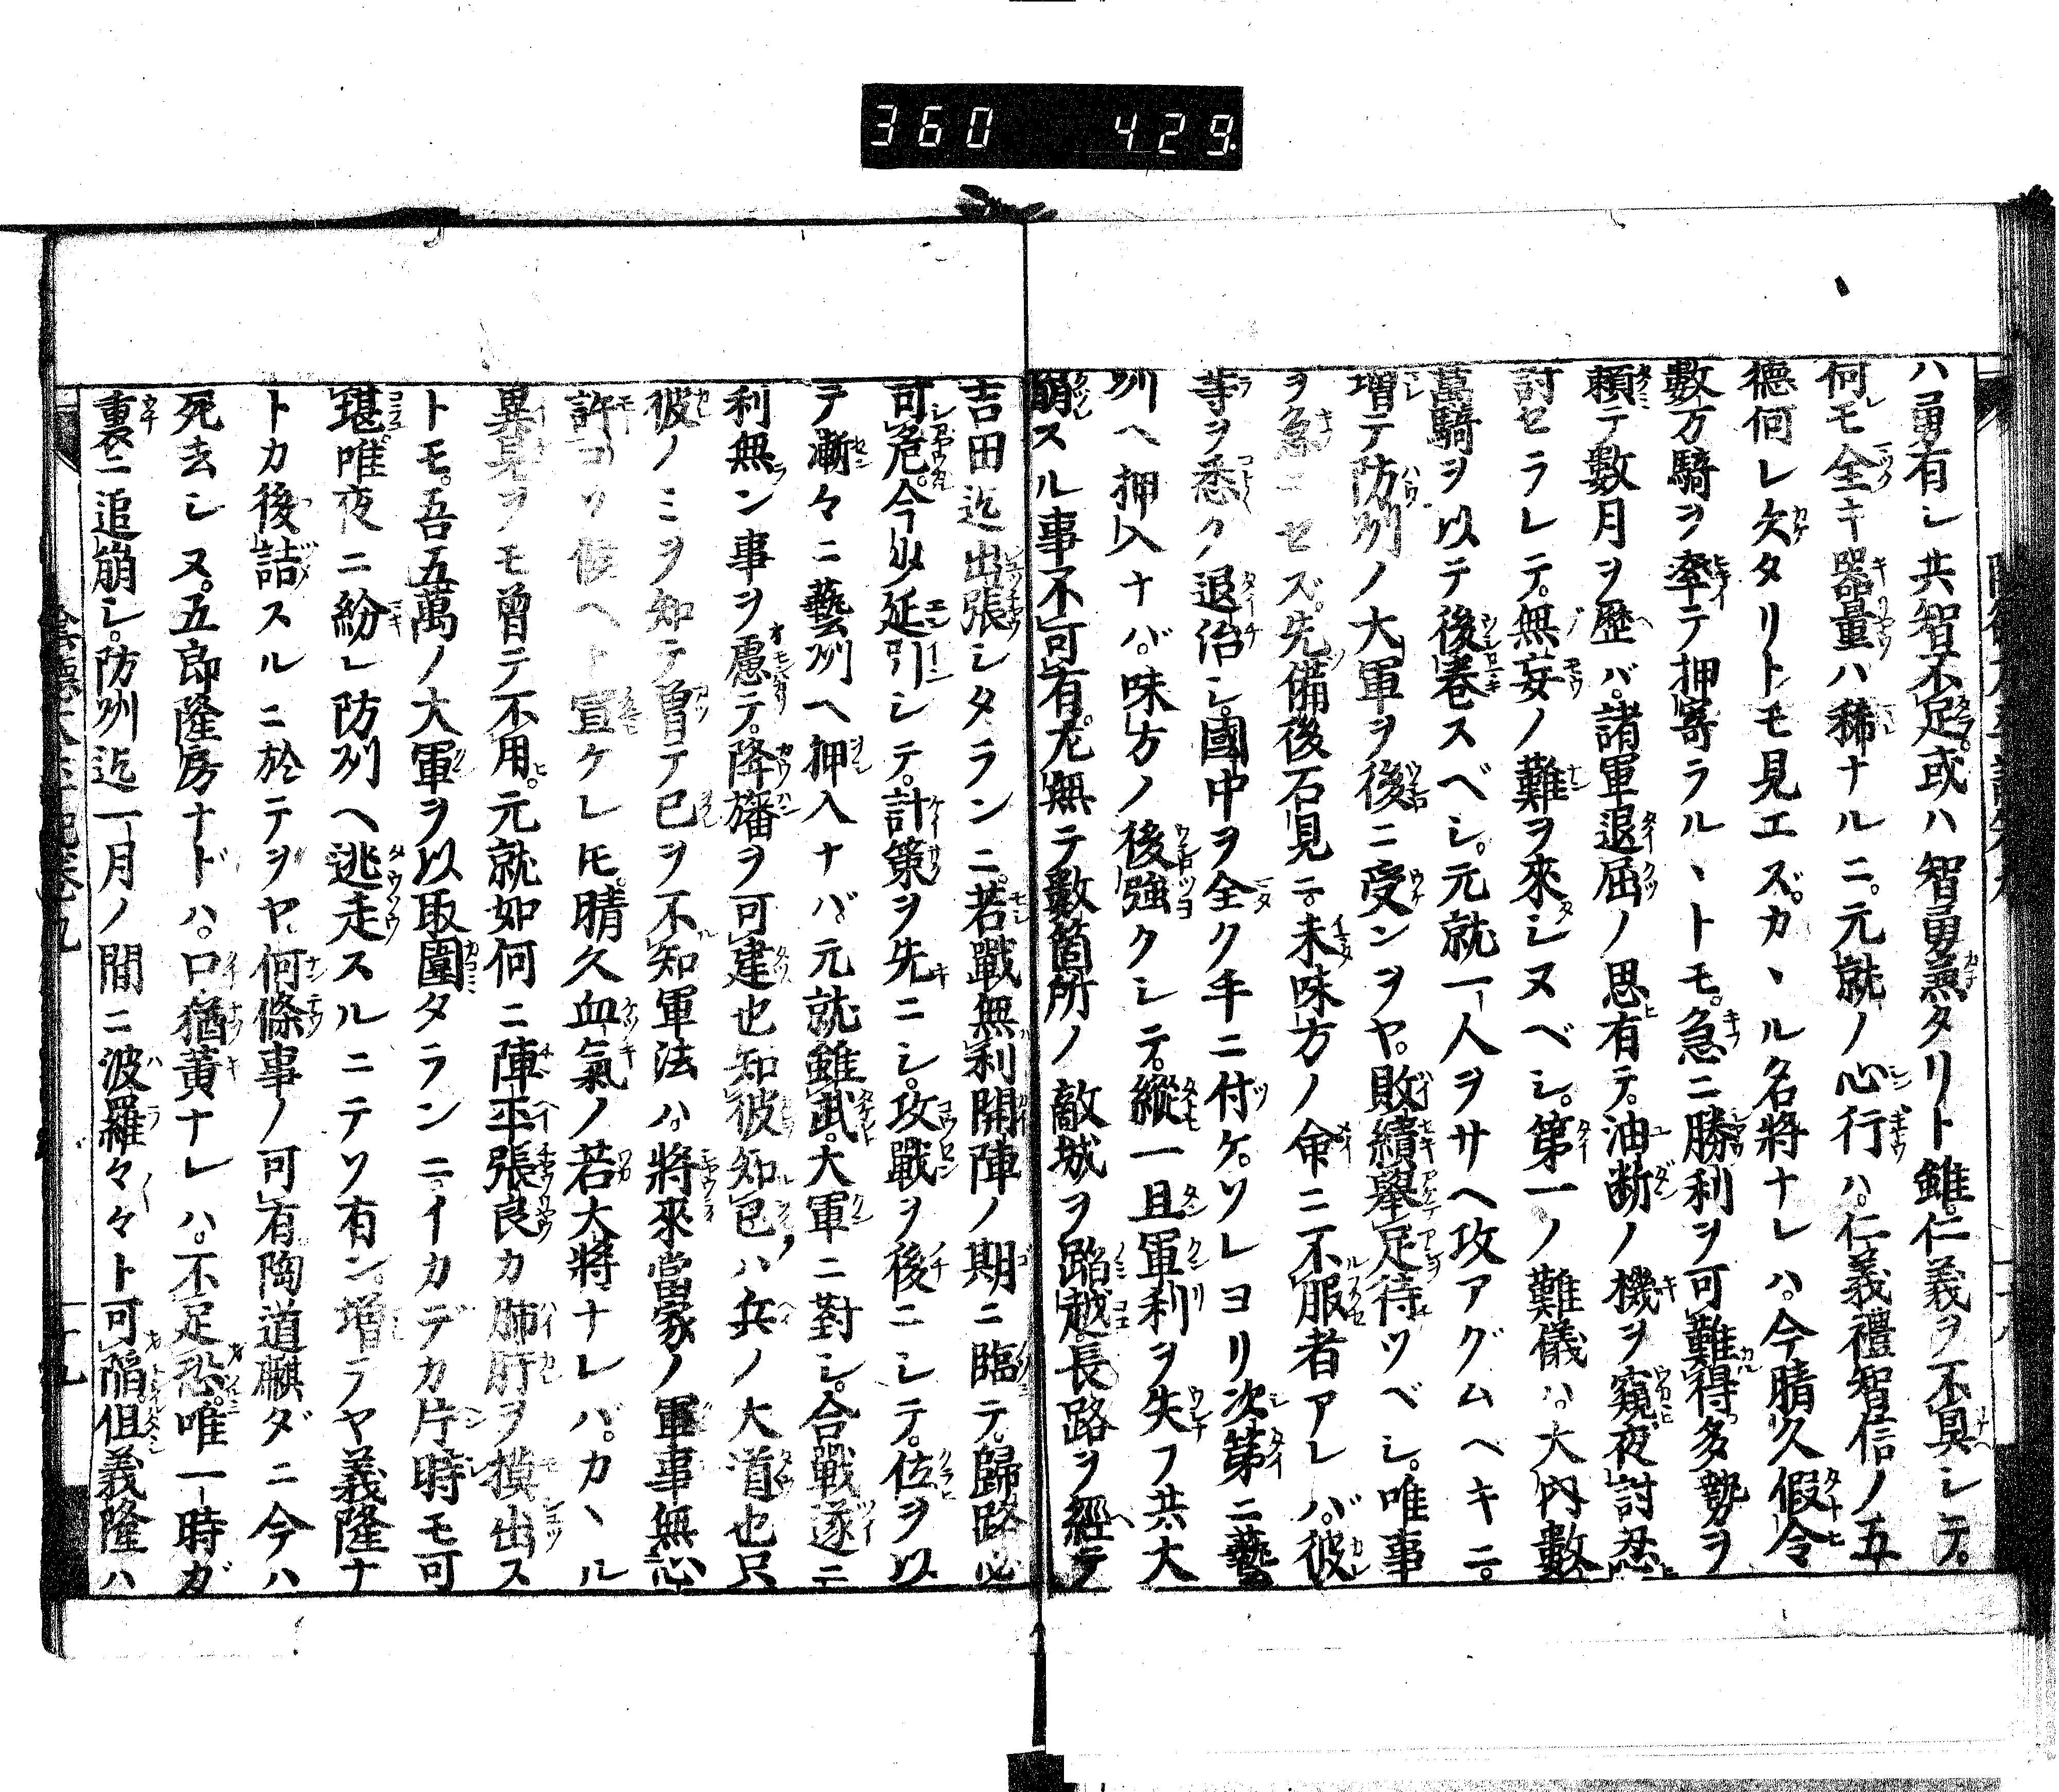 360 429
ハ勇有シ共智不足。或ハ智勇兼タリト雖。仁義ヲ不具シテ。
何モ全キ器量ハ稀ナルニ。元就ノ心行ハ。仁義禮智信ノ五
德何レ欠タリトモ見エズ。カヽル名將ナレハ。今晴久假令
數万騎ヲ牽テ押寄ラルヽトモ。急ニ勝利ヲ可難得。多勢ヲ
賴テ數月ヲ歷バ。諸軍退屈ノ思有テ。油断ノ機ヲ窺夜討忍
討セラレテ。無妄ノ難ヲ來シヌベシ。第一ノ難儀ハ。大内數
萬騎ヲ以テ後卷スベシ。元就一人ヲサヘ攻アグムヘキニ。
增テ防州ノ大軍ヲ後ニ受ンヲヤ。敗績擧足待ツベシ。唯事
ヲ急ニセズ。先備後石見ニ。未味方ノ命ニ不服者アレバ。彼
等ヲ悉ク退治シ。國中ヲ全ク手ニ付ケ。ソレヨリ次第ニ藝
州ヘ押入ナバ。味方ノ後強クシテ。縱一旦軍利ヲ失フ共。大
崩スル事不可有。尤無テ數箇所ノ敵城ヲ蹈越。長路ヲ經テ
吉田迄出張シタランニ。若戰無利開陣ノ期ニ臨テ。歸路必
可危。今少延引シテ。計策ヲ先ニシ。攻戰ヲ後ニシテ。位ヲ以
テ漸々ニ藝州ヘ押入ナバ。元就雖武。大軍ニ對シ。合戰遂ニ
利無ン事ヲ慮テ。降旛ヲ可建也知彼知己ハ兵ノ大道也只
彼ノミヲ知テ曾テ己ヲ不知軍法ハ。將來當家ノ軍事無心
許コソ候ヘト宣ケレ𪜈。晴久血氣ノ若大將ナレバ。カヽル
異見ヲモ曾テ不用。元就如何ニ陳平張良カ肺肝ヲ摸出ス
トモ。吾五萬ノ大軍ヲ以取圍タランニ。イカデカ片時モ可
堪。唯夜ニ紛レ防州ヘ逃走スルニテソ有ン。增テヤ義隆ナ
トカ後詰スルニ於テヲヤ。何條事ノ可有。陶道麒ダニ今ハ
死去シヌ。五郎隆房ナドハ。口猶黃ナレハ。不足恐。唯一時ガ
裏ニ追崩シ。防州迄一月ノ間ニ波羅々々ト可陷但義隆ハ